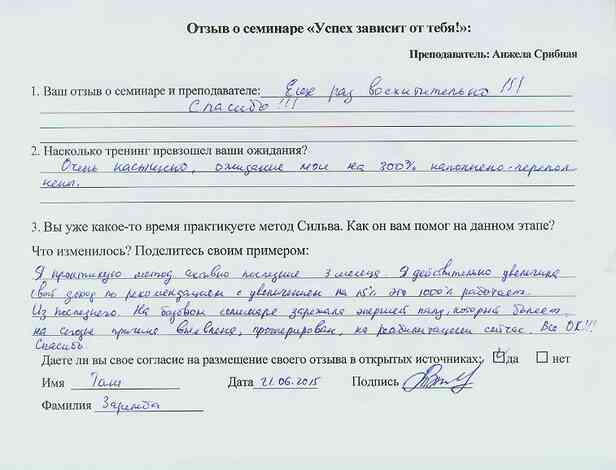 Отзыв о семинаре «Успех зависит от тебя!»:
Преподаватель: Анжела Срибная
1. Ваш отзыв о семинаре и преподавателе: Еще раз восхитительно !!!
Спасибо !!!
2. Насколько тренинг превзошел ваши ожидания?
Очень насыщено, ожидание мои на 300% наполнено-перепол
нены.
3. Вы уже какое-то время практикуете метод Сильва. Как он вам помог на данном этапе?
Что изменилось? Поделитесь своим примером:
Я практикую метод активно последние 3 месяца. Я действительно увеличила
свой доход по рекомендациям с увеличением на 15% это 1000% работает.
Из последнего. На базовом семинаре заряжала энергией папу, который болеет,
на сегодня причина выявлена, прооперирован, на реабилитации сейчас. Все ОК!!!
Спасибо
Даете ли вы свое согласие на размещение своего отзыва в открытых источниках: да нет
Имя Дата 21.06.2015 Подпись
Фамилия